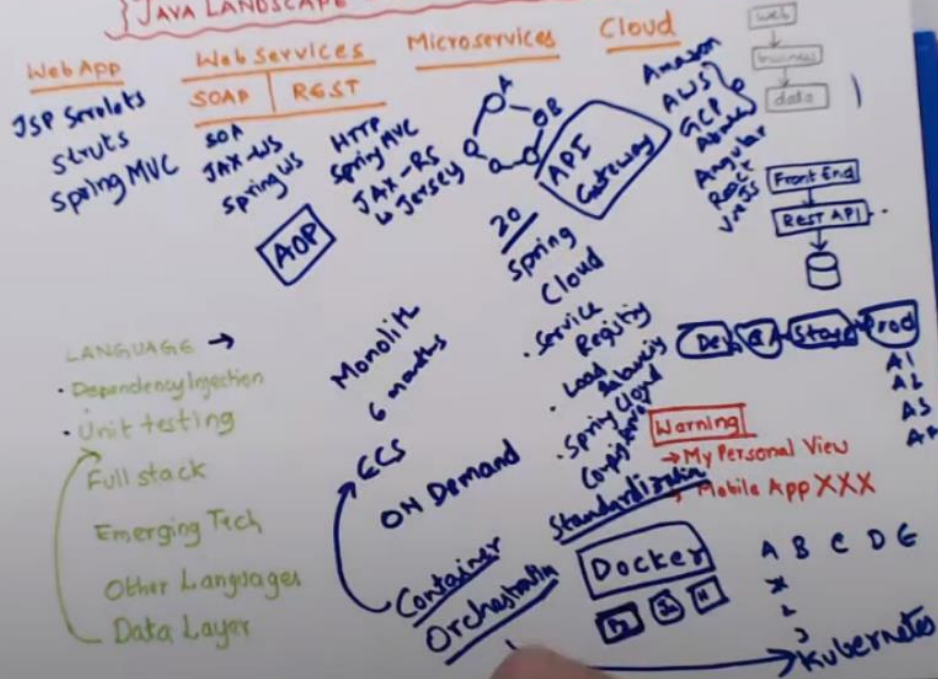 JAVA LANDSCAPE
Web App
JSP Servlets
Struts
Spring MVC
Web services
SOAP
REST
SOA
JAX-WS
Spring WS
HTTP
Spring MVC
JAX-RS
↳ Jersey
AOP
Microservices
A
B
API
Gateway
20
Spring
Cloud
Service
Registry
Load
Balancing
Spring Cloud
Standardization
Cloud
Amazon
AWS
GCP
Angular
React
web
business
data
Front End
REST API
Dev
Stage
Prod
A1
A2
A3
LANGUAGE →
• Dependency Injection
• Unit testing
Full stack
Emerging Tech
Other Languages
Data Layer
Monolith
6 months
ECS
ON Demand
Container
Orchestration
Warning
→ My Personal View
→ Mobile App XXX
Docker
A B C D E
Kubernetes